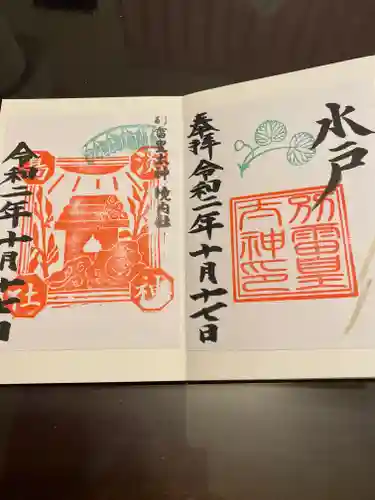 水戸
別雷皇
大神印
奉拝 令和二年十月十七日
別雷皇太神 境内社
令和二年十月十七日
神
社